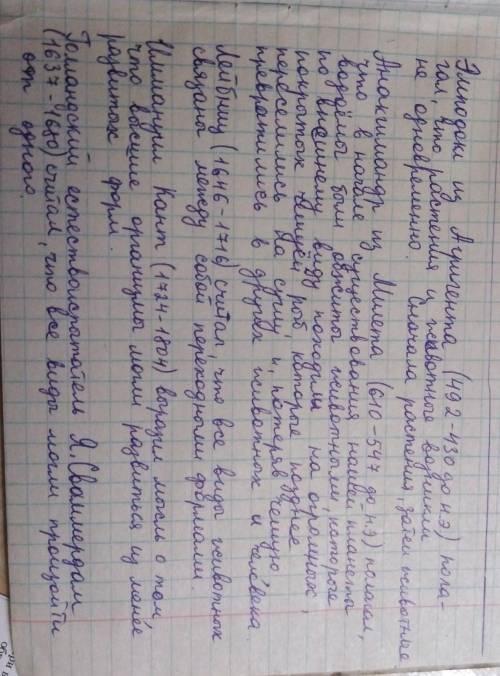 Эмподокл из Агригента (492-430 до н.э) пола-
гал, что растения и животные возникли
не одновременно. Сначала растения, затем животные.
Анаксимандр из Милета (610-547 до н.э) полагал,
что в начале существования нашей планеты
водоёмы были обжиты животными, которые
по внешнему виду походили на огромных,
покрытых чешуёй рыб, которые позднее
переселились на сушу и, потеряв чешую
превратились в других животных и человека.
Лейбниц (1646-1716) считал, что все виды животных
связаны между собой переходными формами.
Иммануил Кант (1724-1804) выразил мысль о том
что высшие организмы могли развиться из менее
развитых форм.
Голландский естествоиспытатель Я.Сваммердам
(1637-1680) считал, что все виды могли произойти
от одного.